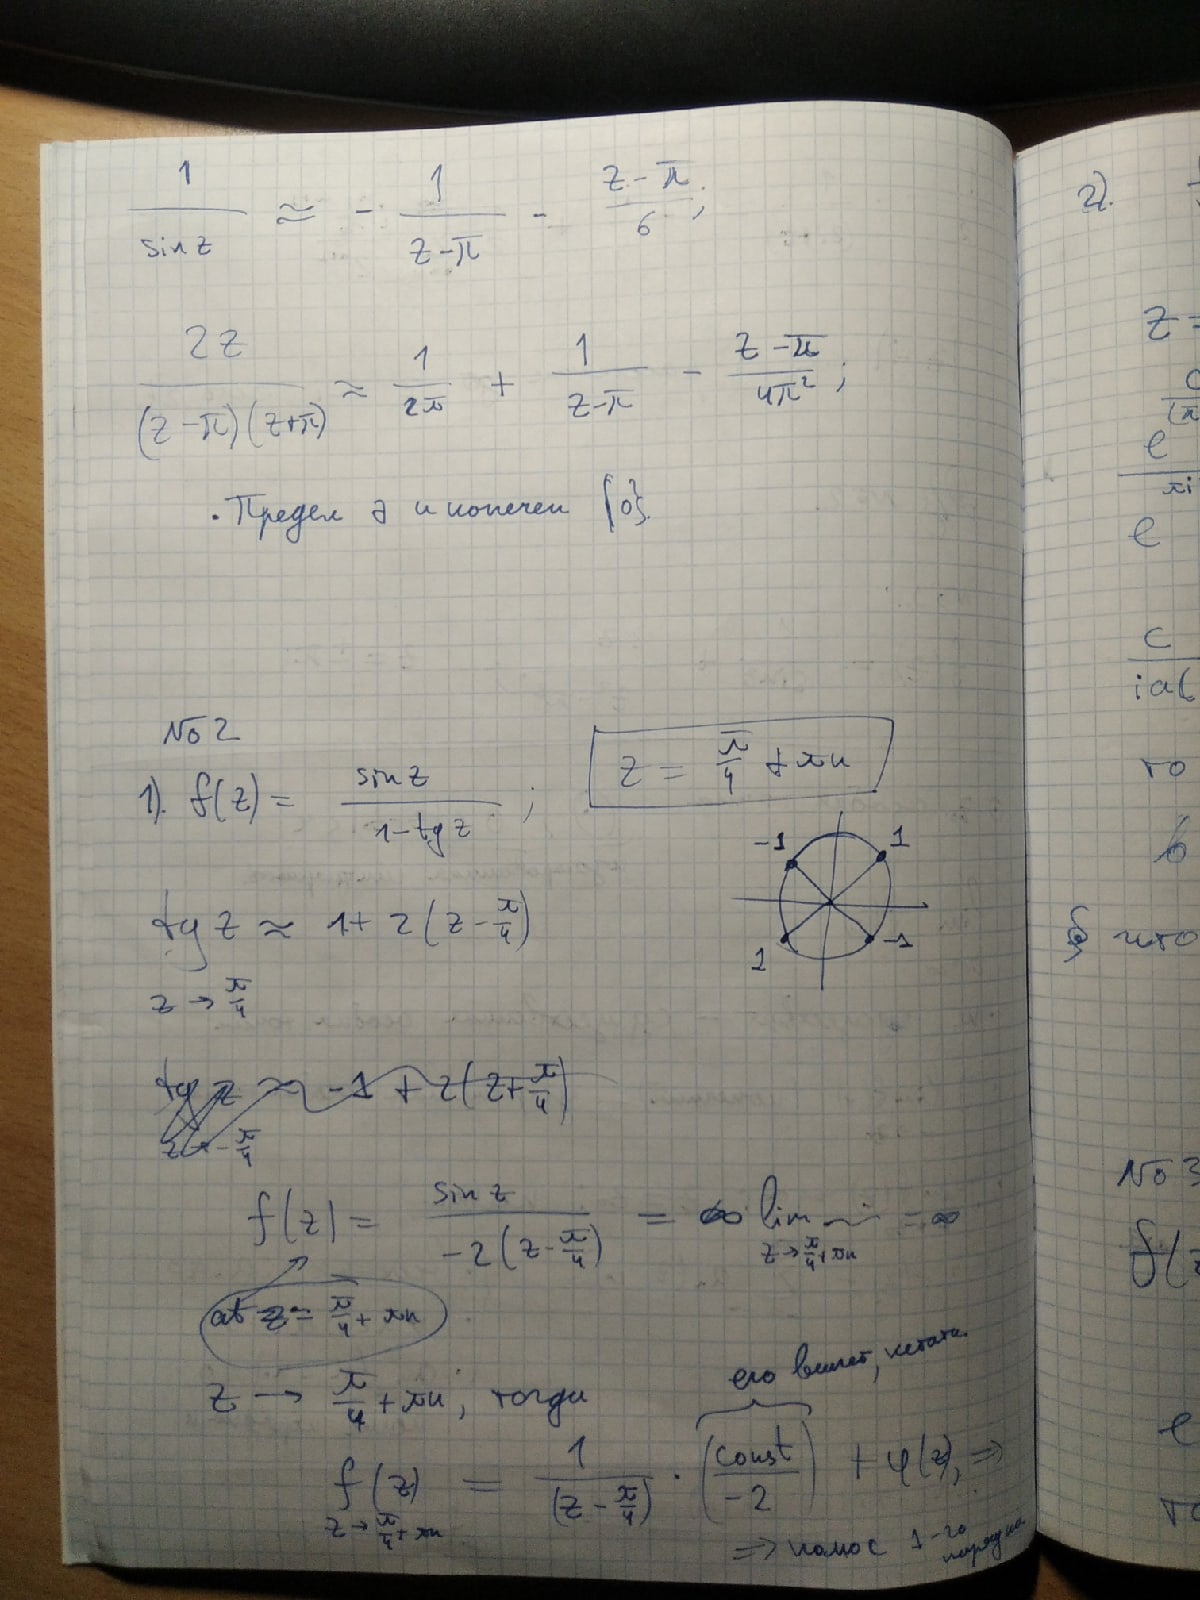 1/sin z ≈ - 1/(z-π) - (z-π)/6;
2z/((z-π)(z+π)) ≈ 1/2π + 1/(z-π) - (z-π)/4π²;
· Предел ∃ и конечен {0}.
№2
1). f(z) = sin z/(1-tg z) ;
z = π/4 + πn
-1 1
1 -1
tg z ≈ 1+ 2(z-π/4)
z → π/4
tg z ≈ -1 + 2(z+π/4)
z → -π/4
f(z) = sin z/(-2(z-π/4)) = ∞ lim = ∞
z→π/4+πn
at z = π/4 + πn
z → π/4 + πn, тогда
его вычет, кстати
f(z) = 1/(z-π/4) · (const/-2) + φ(z), ⇒
z→π/4+πn
⇒ полюс 1-го порядка
2).
z =
e
πi
e
c
ia(
то
б
что
№3
f(z
e
то